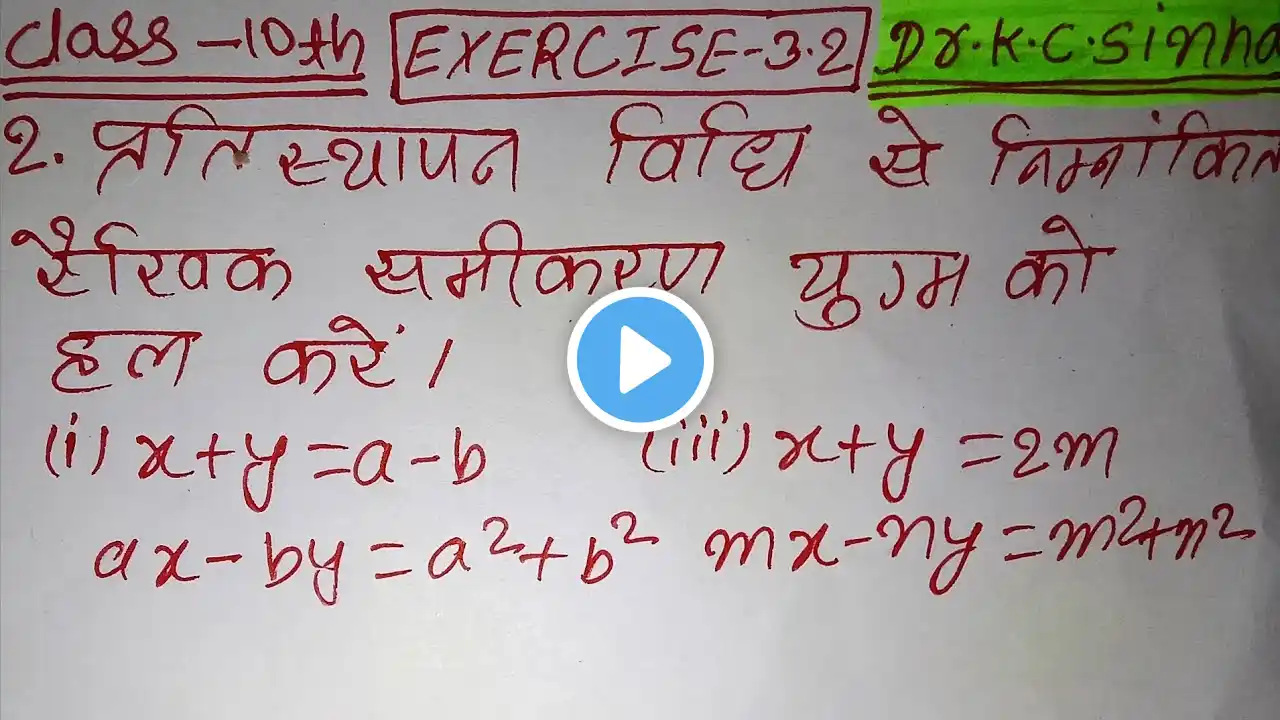 Class-10th EXERCISE-3.2 Dr.K.C.Sinha
2. प्रतिस्थापन विधि से निम्नांकित
रैखिक समीकरण युग्म को
हल करें।
(i) x+y=a-b (iii) x+y=2m
ax-by=a²+b² mx-ny=m²+n²